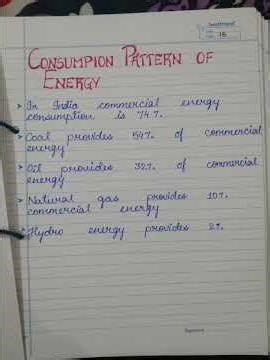 15
CONSUMPION PATTERN OF
ENERGY
In India commercial energy
consumption is 74%.
Coal provides 54% of commercial
energy
Oil provides 32% of commercial
energy.
Natural gas provides 10%
commercial energy
Hydro energy provides 2%.